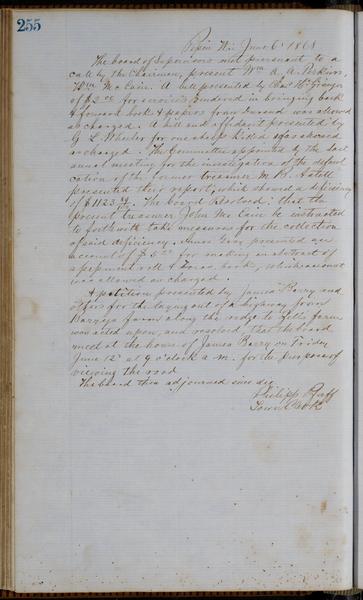 255
Pepin Wis June 6th 1868
The board of Supervisors met pursuant to a
call by the Chairman, present Wm A. A. Perkins,
Wm McCain. A bill presented by Chas Granger
of $2.00 for services rendered in bringing back
town book & papers from was allowed
as charged. A bill and affidavit presented by
G L. Wheeler for one sheep kild was allowed
as charged. The Committee appointed by the last
annual meeting for the investigation of the defaul
cation of the former treasurer M. B. Axtell
presented their report, which showed a deficiency
of $1123. The board Resolved: that the
present treasurer John McCain be instructed
to forthwith take measures for the collection
of said deficiency. Amos Gray presented an
account of $5.00 for making an abstract of
assessment roll & book, which account
was allowed as charged.
A petition presented by James Barry and
others for the laying out of a highway from
farm along the ridge to farm
was acted upon, and resolved, that the board
meet at the house of James Barry on Friday
June 12th at 9 o'clock a. m. for the purpose of
viewing the road
The board then adjourned sine die
Philipp Ruff
Town Clerk